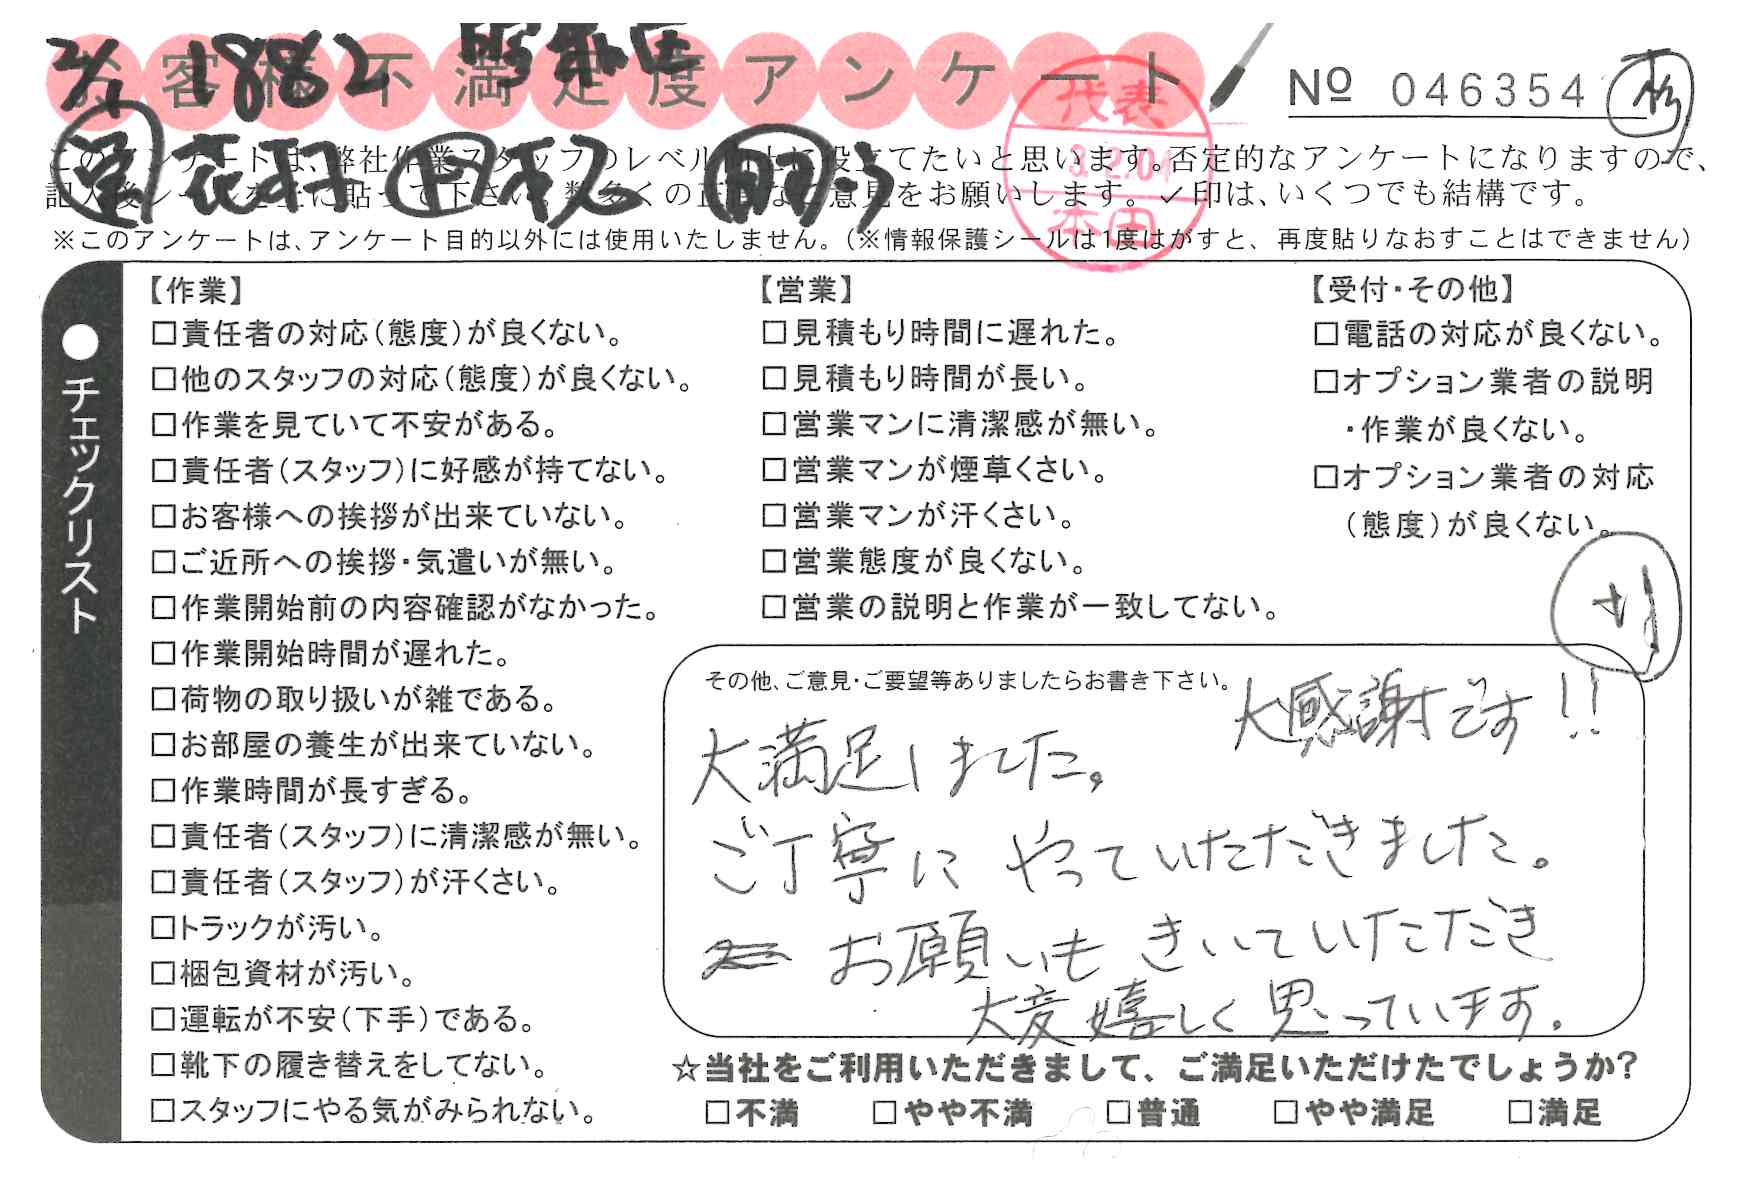 お客様不満足度アンケート
2/1 1882
№ 046354
代表
3.2.01
本田
このアンケートは、弊社作業スタッフのレベル向上に役立てたいと思います。否定的なアンケートになりますので、
記入後シールを上に貼って下さい。数多くの正直なご意見をお願いします。✓印は、いくつでも結構です。
※このアンケートは、アンケート目的以外には使用いたしません。(※情報保護シールは1度はがすと、再度貼りなおすことはできません)
●チェックリスト
【作業】
□責任者の対応(態度)が良くない。
□他のスタッフの対応(態度)が良くない。
□作業を見ていて不安がある。
□責任者(スタッフ)に好感が持てない。
□お客様への挨拶が出来ていない。
□ご近所への挨拶・気遣いが無い。
□作業開始前の内容確認がなかった。
□作業開始時間が遅れた。
□荷物の取り扱いが雑である。
□お部屋の養生が出来ていない。
□作業時間が長すぎる。
□責任者(スタッフ)に清潔感が無い。
□責任者(スタッフ)が汗くさい。
□トラックが汚い。
□梱包資材が汚い。
□運転が不安(下手)である。
□靴下の履き替えをしてない。
□スタッフにやる気がみられない。
【営業】
□見積もり時間に遅れた。
□見積もり時間が長い。
□営業マンに清潔感が無い。
□営業マンが煙草くさい。
□営業マンが汗くさい。
□営業態度が良くない。
□営業の説明と作業が一致してない。
【受付・その他】
□電話の対応が良くない。
□オプション業者の説明
・作業が良くない。
□オプション業者の対応
(態度)が良くない。
その他、ご意見・ご要望等ありましたらお書き下さい。
大感謝です!!
大満足しました。
ご丁寧に やっていただきました。
お願いも きいていただき
大変嬉しく思っています。
☆当社をご利用いただきまして、ご満足いただけたでしょうか?
□不満 □やや不満 □普通 □やや満足 □満足